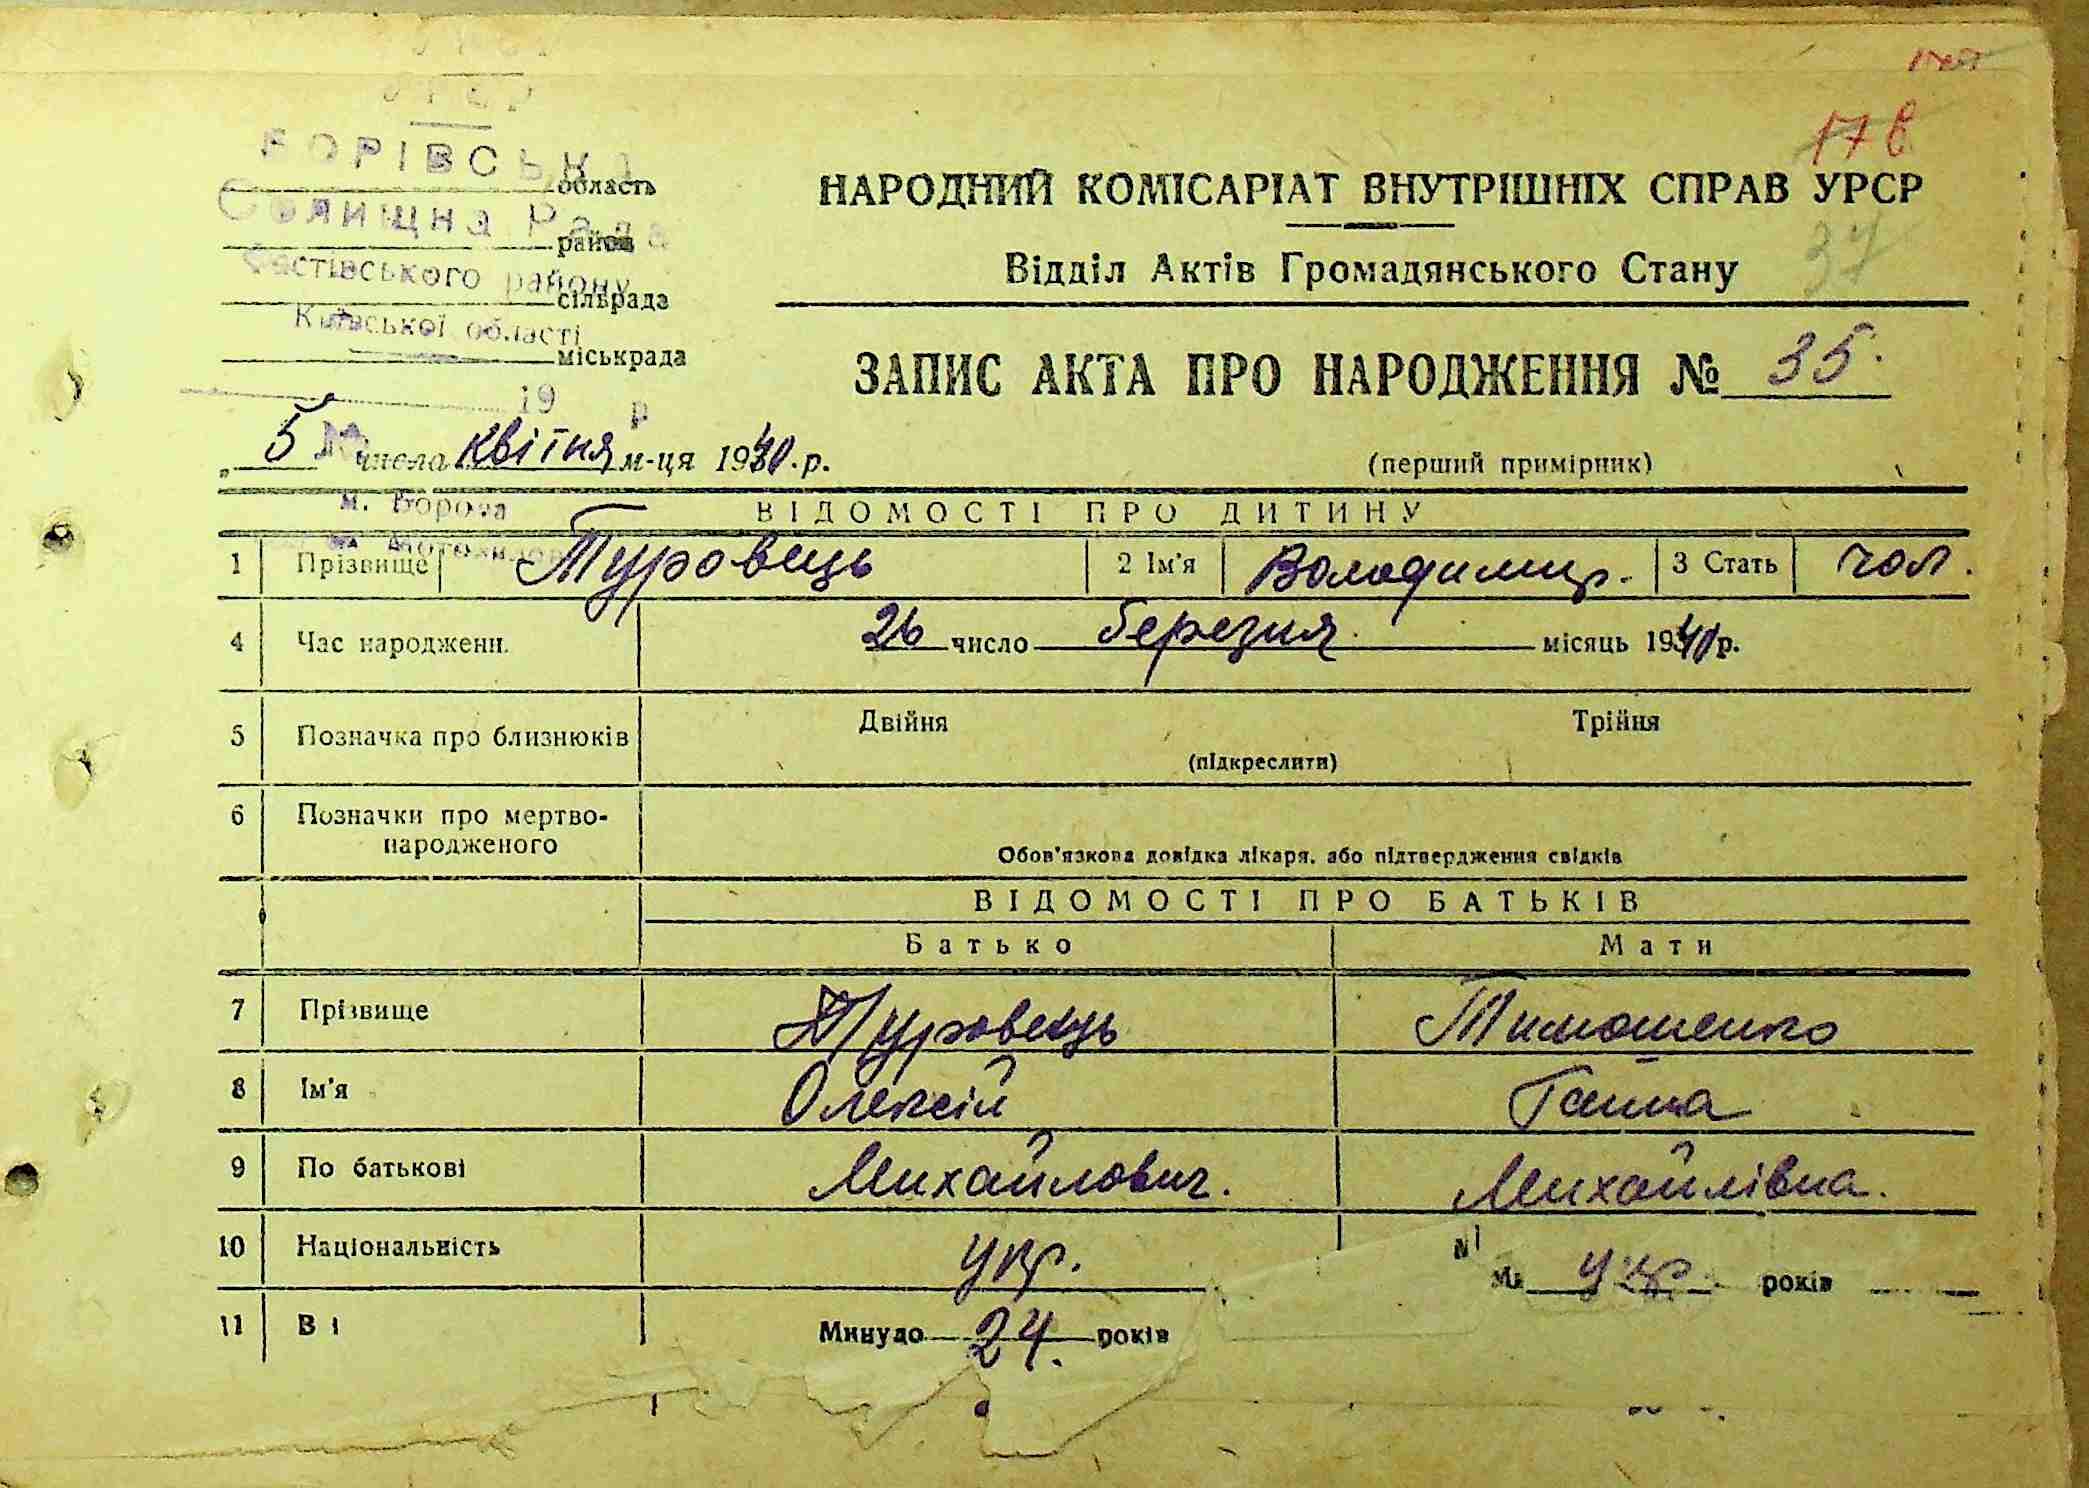 УРСР
БОРІВСЬКА
область
Селищна Рада
район
Фастівського району
сільрада
Київської області
міськрада
19 р
17 в
НАРОДНИЙ КОМІСАРІАТ ВНУТРІШНІХ СПРАВ УРСР
37
Відділ Актів Громадянського Стану
ЗАПИС АКТА ПРО НАРОДЖЕННЯ № 35.
„ 5 числа квітня м-ця 1940. р.
(перший примірник)
м. Борова
ВІДОМОСТІ ПРО ДИТИНУ
1 Прізвище Туровець 2 Ім'я Володимир. 3 Стать чол.
4 Час народженн. 26 число березня місяць 1940 р.
5 Позначка про близнюків Двійня Трійня
(підкреслити)
6 Позначки про мертво-
народженого
Обов'язкова довідка лікаря, або підтвердження свідків
ВІДОМОСТІ ПРО БАТЬКІВ
Батько Мати
7 Прізвище Туровець Тимошенко
8 Ім'я Олексій Ганна
9 По батькові Михайлович. Михайлівна.
10 Національність укр. укр. років
11 Ві Минуло 24. років